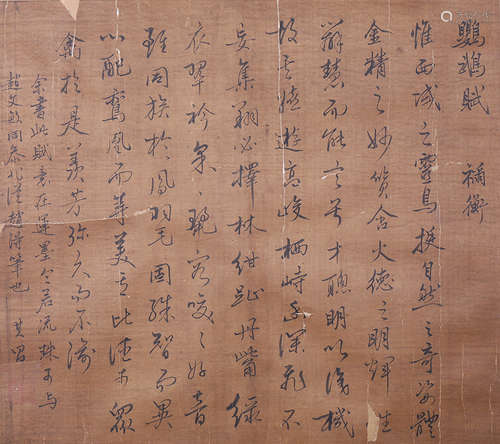 鸚鵡賦 禰衡
惟西域之靈鳥挺自然之奇姿體
金精之妙質含火德之明輝性
辯慧而能言兮才聰明以識機
故其嬉遊高峻栖峙幽深飛不
妄集翔必擇林紺趾丹嘴綠
衣翠衿采〻麗容咬〻好音
雖同族於羽毛固殊智而異
心配鸞凰而等美焉比德於眾
禽於是羨芳弥久而不渝
余書此賦意在運墨令若流珠可與
趙文敏同參 也 其昌